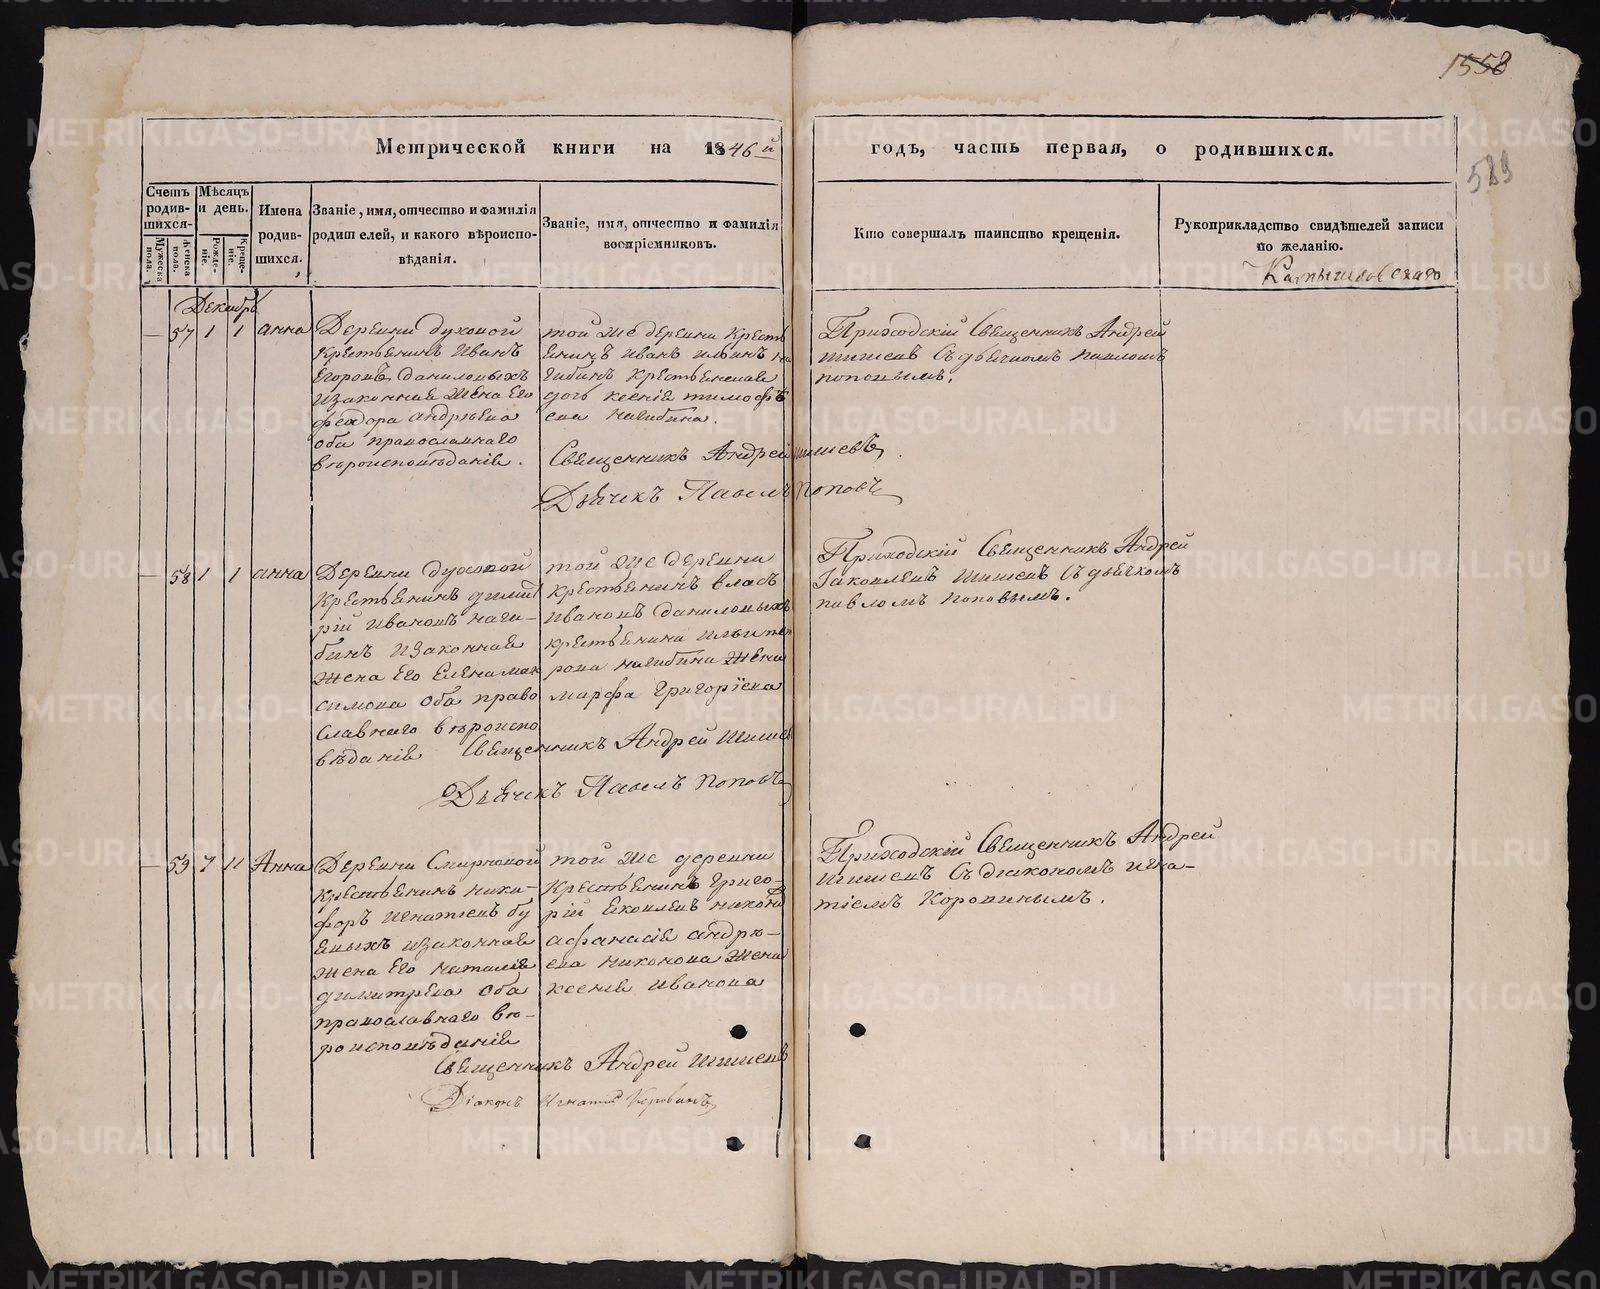 1558
589
Метрической книги на 1846й
годъ, часть первая, о родившихся.
Счетъ родившихся.
Мужеска пола.
Женска пола.
Мѣсяцъ и день.
Рожденіе.
Крещеніе.
Имена родившихся.
Званіе, имя, отчество и фамилія
родителей, и какого вѣроиспо-
вѣданія.
Званіе, имя, отчество и фамилія
воспріемниковъ.
Кто совершалъ таинство крещенія.
Рукоприкладство свидѣтелей записи
по желанію.
Камышловскаго
Декабрь
— 57 1 1 анна
Деревни духовой
крестьянинъ Иванъ
Егоровъ даниловыхъ
изаконная жена его
феодора андрѣева
оба православнаго
вѣроисповѣданія.
той же деревни кресть
янинъ иванъ ильинъ на
гибинъ крестьянская
дочь ксенія тимофѣ
ева нагибина.
Священникъ Андрей шишевъ
Дьячекъ Павелъ Поповъ
Приходскій Священникъ Андрей
шишевъ Съ дьячкомъ павломъ
поповымъ.
— 58 1 1 анна
Деревни духовой
крестьянинъ димит
рій ивановъ наги-
бинъ изаконная
жена его Елена мак
симова оба право
славнаго вѣроиспо
вѣданія
той же деревни
крестьянинъ власъ
ивановъ даниловыхъ
крестьянина ильи пет
рова нагибина жена
марфа григорїева
Священникъ Андрей Шишев
Дьячекъ Павелъ Поповъ
Приходскій Священникъ Андрей
Іаковлевъ Шишевъ Съ дьячкомъ
павломъ поповымъ.
— 59 7 11 Анна
Деревни Смирновой
крестьянинъ ники-
форъ игнатьевъ бу
евыхъ изаконная
жена его наталія
димитрева оба
православнаго вѣ-
роисповѣданія
той же деревни
крестьянинъ григо-
рій яковлевъ никоно
афанасія андрѣ-
ева никонова жена
ксенія иванова
Священникъ Андрей шишевъ
Діаконъ Игнатій Коровинъ
Приходскій Священникъ Андрей
шишевъ Съ діакономъ игна-
тіемъ Коровинымъ.
METRIKI.GASO-URAL.RU